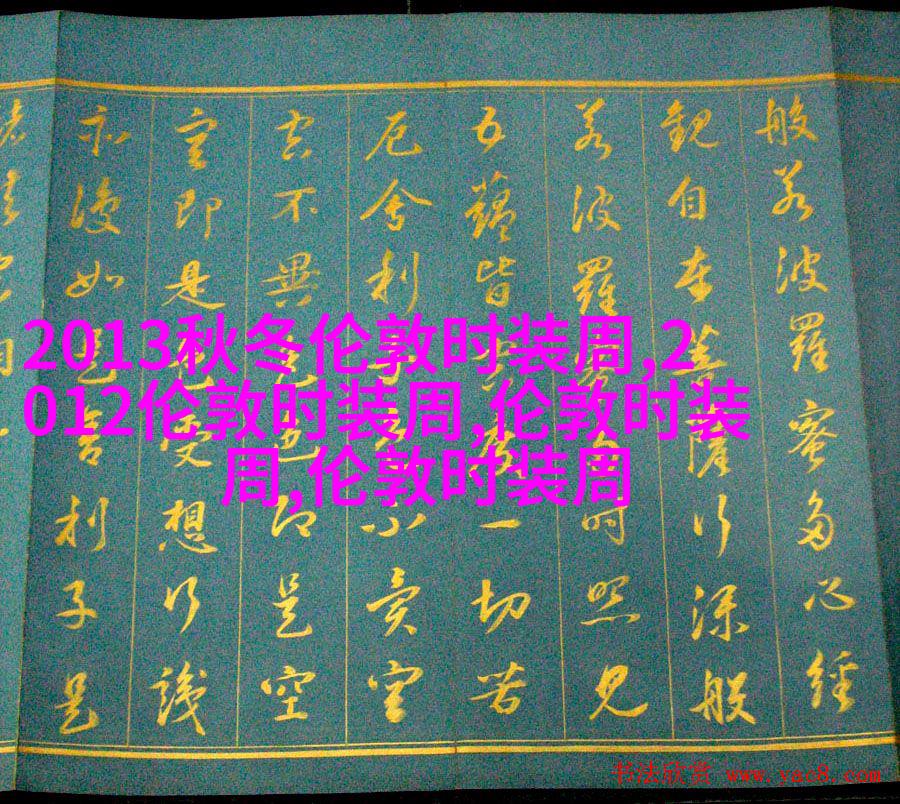 般若波羅蜜多心經
觀自在菩薩行深般
若波羅蜜多時照見
五蘊皆空度一切苦
厄舍利子色不異空
空不異色色即是空
空即是色受想行識
亦復如是舍利子是
2013秋冬伦敦时装周,2
012伦敦时装周,伦敦时装
周,伦敦时装周
书法欣赏 www.yac8.com